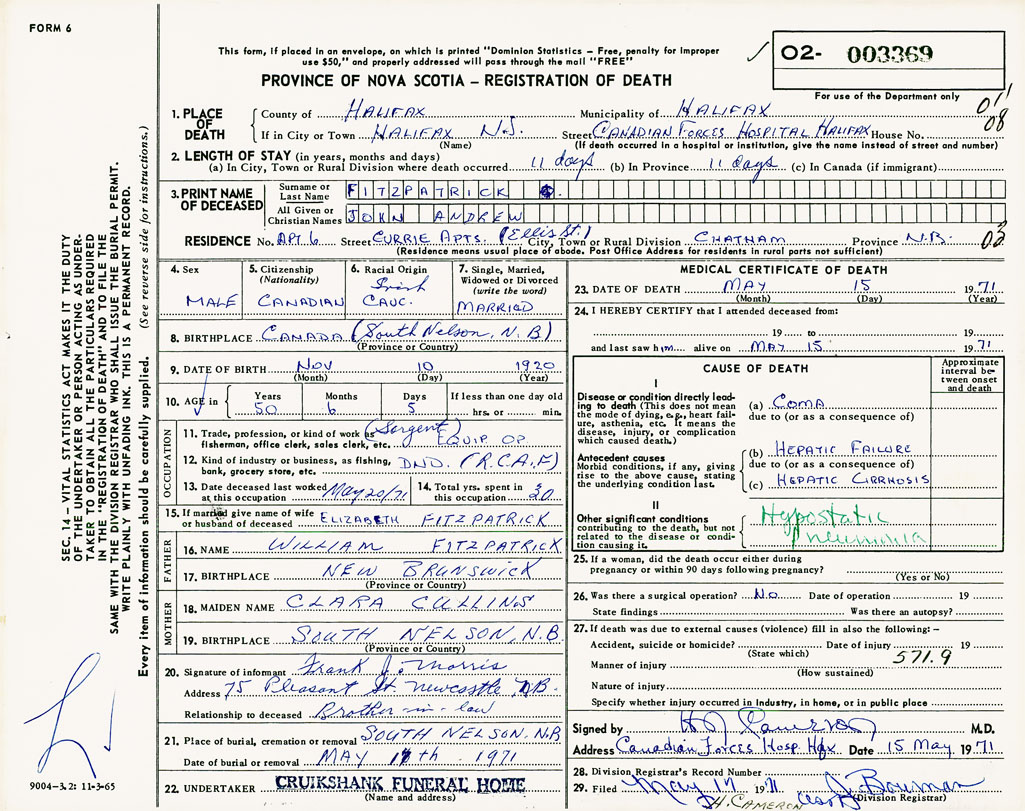 FORM 6
This form, if placed in an envelope, on which is printed "Dominion Statistics – Free, penalty for improper
use $50," and properly addressed will pass through the mail "FREE"
PROVINCE OF NOVA SCOTIA – REGISTRATION OF DEATH
O2- 003369
For use of the Department only
011
08
1. PLACE OF DEATH
County of HALIFAX Municipality of HALIFAX
If in City or Town HALIFAX N.S. Street CANADIAN FORCES HOSPITAL HALIFAX House No.
(Name) (If death occurred in a hospital or institution, give the name instead of street and number)
2. LENGTH OF STAY (in years, months and days)
(a) In City, Town or Rural Division where death occurred 11 days (b) In Province 11 days (c) In Canada (if immigrant)
3. PRINT NAME OF DECEASED
Surname or Last Name FITZPATRICK
All Given or Christian Names JOHN ANDREW
RESIDENCE No. APT 6 Street CURRIE APTS. (Ellis St.) City, Town or Rural Division CHATHAM Province N.B. 03
(Residence means usual place of abode. Post Office Address for residents in rural parts not sufficient)
4. Sex
MALE
5. Citizenship (Nationality)
CANADIAN
6. Racial Origin
Irish
CAUC.
7. Single, Married, Widowed or Divorced (write the word)
MARRIED
8. BIRTHPLACE CANADA (South Nelson, N.B)
(Province or Country)
9. DATE OF BIRTH NOV 10 1920
(Month) (Day) (Year)
10. AGE in Years Months Days If less than one day old
50 6 5 hrs. or min.
OCCUPATION
11. Trade, profession, or kind of work as fisherman, office clerk, sales clerk, etc. (Sergent) EQUIP OP
12. Kind of industry or business, as fishing, bank, grocery store, etc. DND. (R.C.A.F)
13. Date deceased last worked at this occupation May 20/71
14. Total yrs. spent in this occupation 30
15. If married give name of wife or husband of deceased ELIZABETH FITZPATRICK
FATHER
16. NAME WILLIAM FITZPATRICK
17. BIRTHPLACE NEW BRUNSWICK
(Province or Country)
MOTHER
18. MAIDEN NAME CLARA CULLINS
19. BIRTHPLACE SOUTH NELSON, N.B.
(Province or Country)
20. Signature of informant Frank J. Morris
Address 75 Pleasant St. Newcastle, N.B.
Relationship to deceased Brother-in-law
21. Place of burial, cremation or removal SOUTH NELSON, N.B
Date of burial or removal MAY 17th 1971
22. UNDERTAKER CRUIKSHANK FUNERAL HOME
(Name and address)
MEDICAL CERTIFICATE OF DEATH
23. DATE OF DEATH MAY 15 1971
(Month) (Day) (Year)
24. I HEREBY CERTIFY that I attended deceased from:
19 to 19
and last saw him alive on MAY 15 1971
CAUSE OF DEATH
Approximate interval between onset and death
I
Disease or condition directly leading to death (This does not mean the mode of dying, e.g., heart failure, asthenia, etc. It means the disease, injury, or complication which caused death.)
(a) COMA
due to (or as a consequence of)
Antecedent causes
Morbid conditions, if any, giving rise to the above cause, stating the underlying condition last.
(b) HEPATIC FAILURE
due to (or as a consequence of)
(c) HEPATIC CIRRHOSIS
II
Other significant conditions contributing to the death, but not related to the disease or condition causing it.
Hypostatic
Pneumonia
25. If a woman, did the death occur either during pregnancy or within 90 days following pregnancy?
(Yes or No)
26. Was there a surgical operation? No Date of operation 19
State findings Was there an autopsy?
27. If death was due to external causes (violence) fill in also the following: –
Accident, suicide or homicide? Date of injury 19
(State which)
571.9
Manner of injury
(How sustained)
Nature of injury
Specify whether injury occurred in industry, in home, or in public place
Signed by M.D.
Address Canadian Forces Hosp. Hfx. Date 15 May 1971
28. Division Registrar's Record Number
29. Filed May 17 1971 J. Bowman
(Division Registrar)
H. CAMERON
SEC. 14 – VITAL STATISTICS ACT MAKES IT THE DUTY
OF THE UNDERTAKER OR PERSON ACTING AS UNDER-
TAKER TO OBTAIN ALL THE PARTICULARS REQUIRED
IN THE "REGISTRATION OF DEATH" AND TO FILE THE
SAME WITH THE DIVISION REGISTRAR WHO SHALL ISSUE THE BURIAL PERMIT.
WRITE PLAINLY WITH UNFADING INK. THIS IS A PERMANENT RECORD.
Every item of information should be carefully supplied. (See reverse side for instructions.)
9004-3.2: 11-3-65